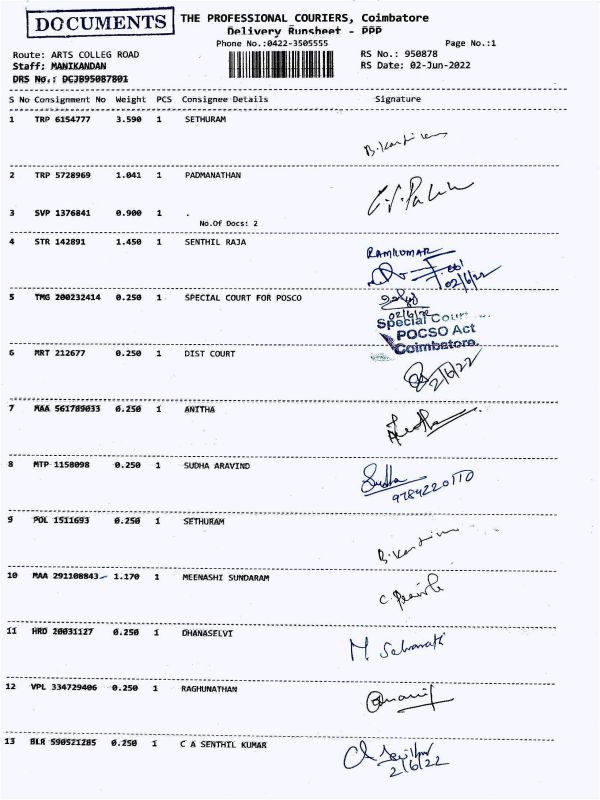 DOCUMENTS
THE PROFESSIONAL COURIERS, Coimbatore
Delivery Runsheet - PPP
Phone No.:0422-3505555 Page No.:1
Route: ARTS COLLEG ROAD RS No.: 950878
Staff: MANIKANDAN RS Date: 02-Jun-2022
DRS No.: DCJB95087801
S No Consignment No Weight PCS Consignee Details Signature
1 TRP 6154777 3.590 1 SETHURAM
2 TRP 5728969 1.041 1 PADMANATHAN
3 SVP 1376841 0.900 1 .
No.Of Docs: 2
4 STR 142891 1.450 1 SENTHIL RAJA
RAMKUMAR
02/6/22
5 TMG 200232414 0.250 1 SPECIAL COURT FOR POSCO
02/6/22
Special Court
POCSO Act
Coimbatore.
6 MRT 212677 0.250 1 DIST COURT
2/6/22
7 MAA 561789033 0.250 1 ANITHA
8 MTP 1158098 0.250 1 SUDHA ARAVIND
Sudha
9784220110
9 POL 1511693 0.250 1 SETHURAM
10 MAA 291108843 1.170 1 MEENASHI SUNDARAM
11 HRD 20031127 0.250 1 DHANASELVI
12 VPL 334729406 0.250 1 RAGHUNATHAN
13 BLR 590521285 0.250 1 C A SENTHIL KUMAR
2/6/22